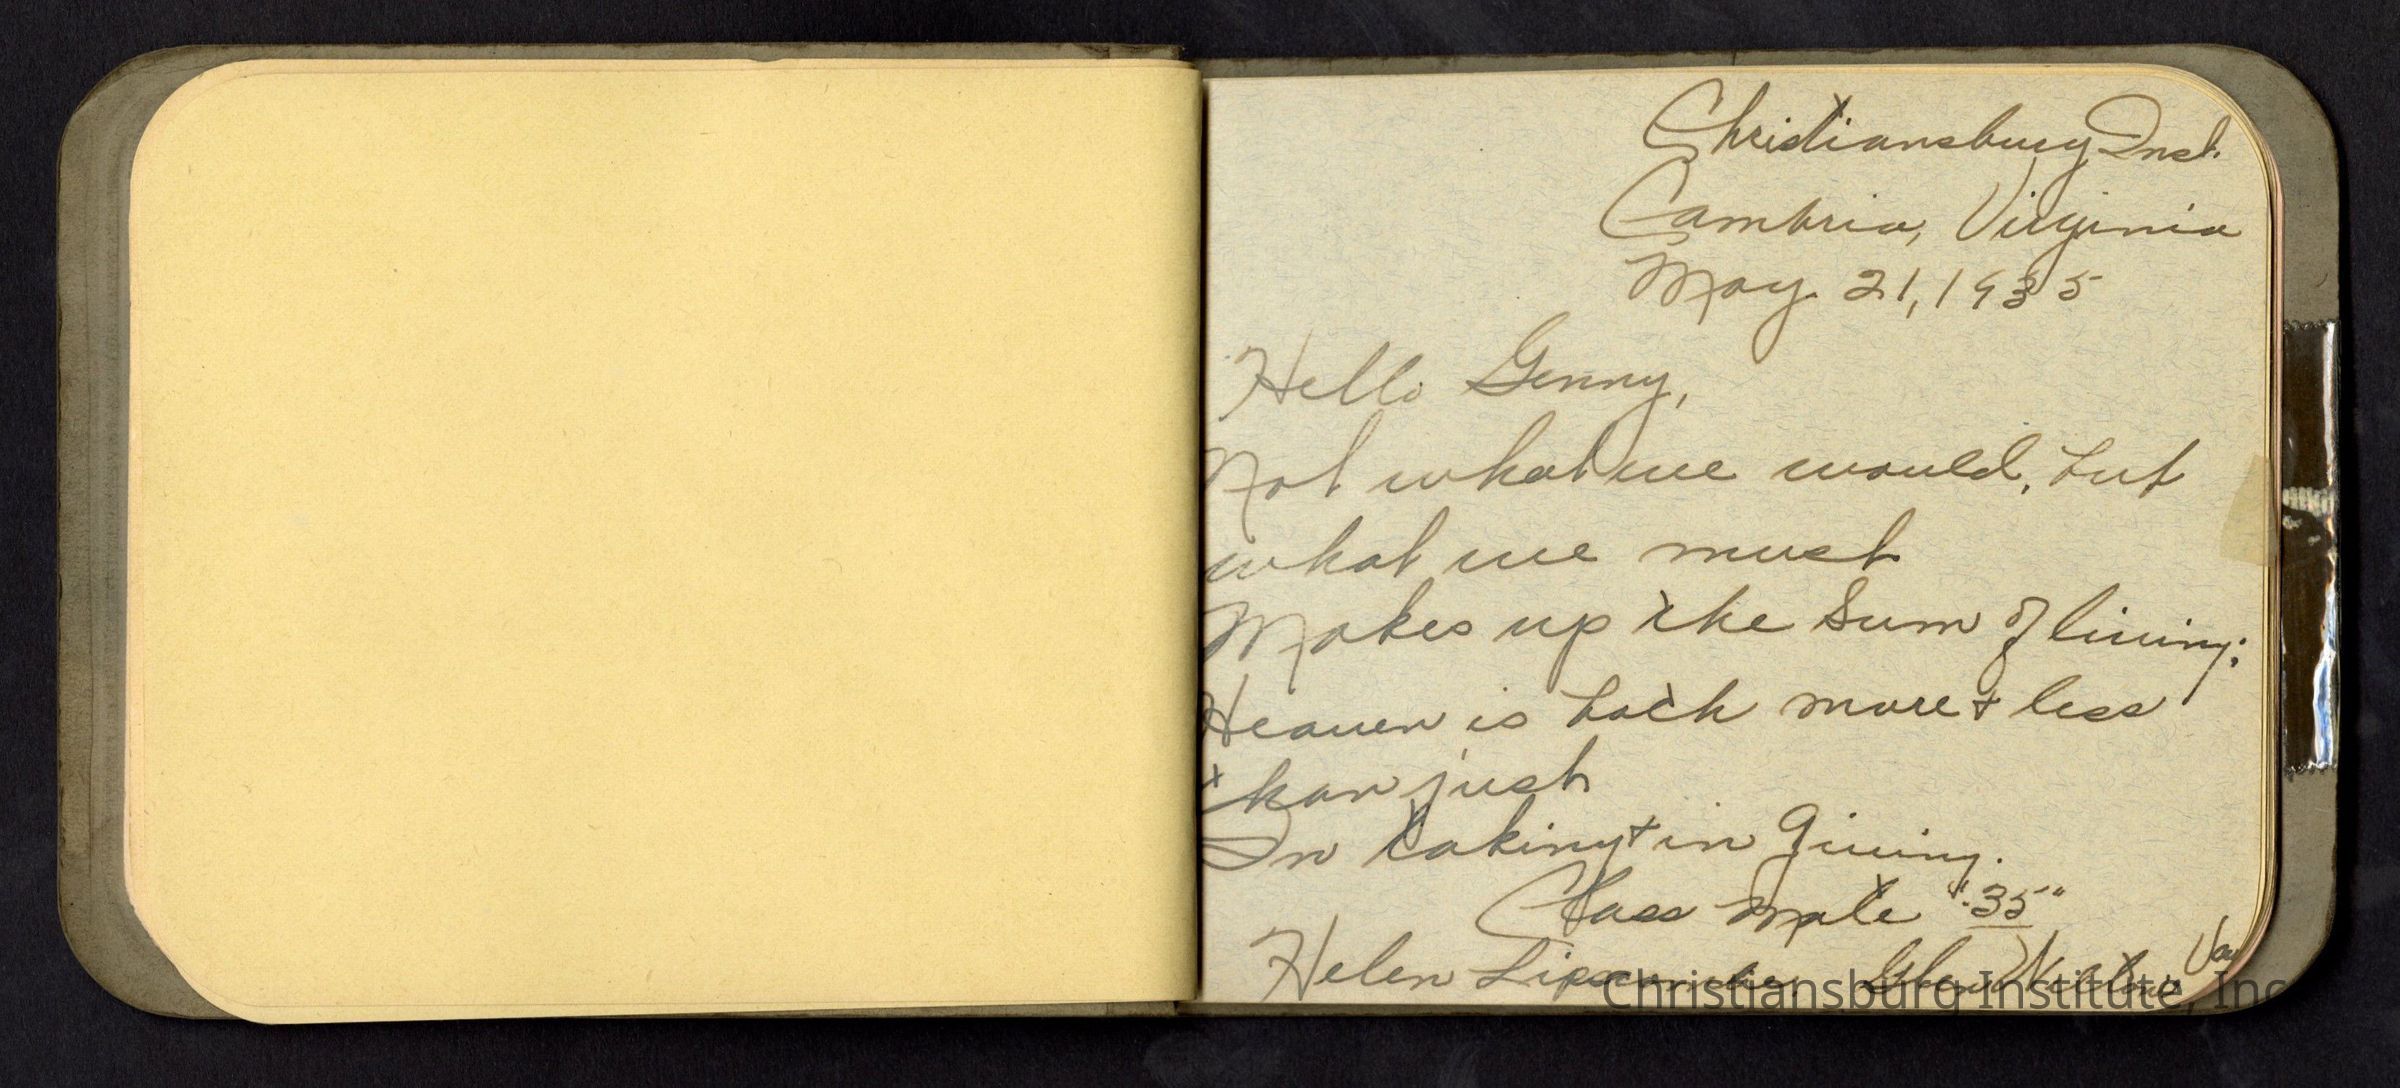 Christiansburg Inst.
Cambria, Virginia
May 21, 1935
Hello Genny,
Not what we would, but
what we must
Makes up the Sum of living;
Heaven is both more + less
than just
In taking + in giving.
Class mate "35"
Helen Lipscombe. Glen Wilton Va
Christiansburg Institute, Inc